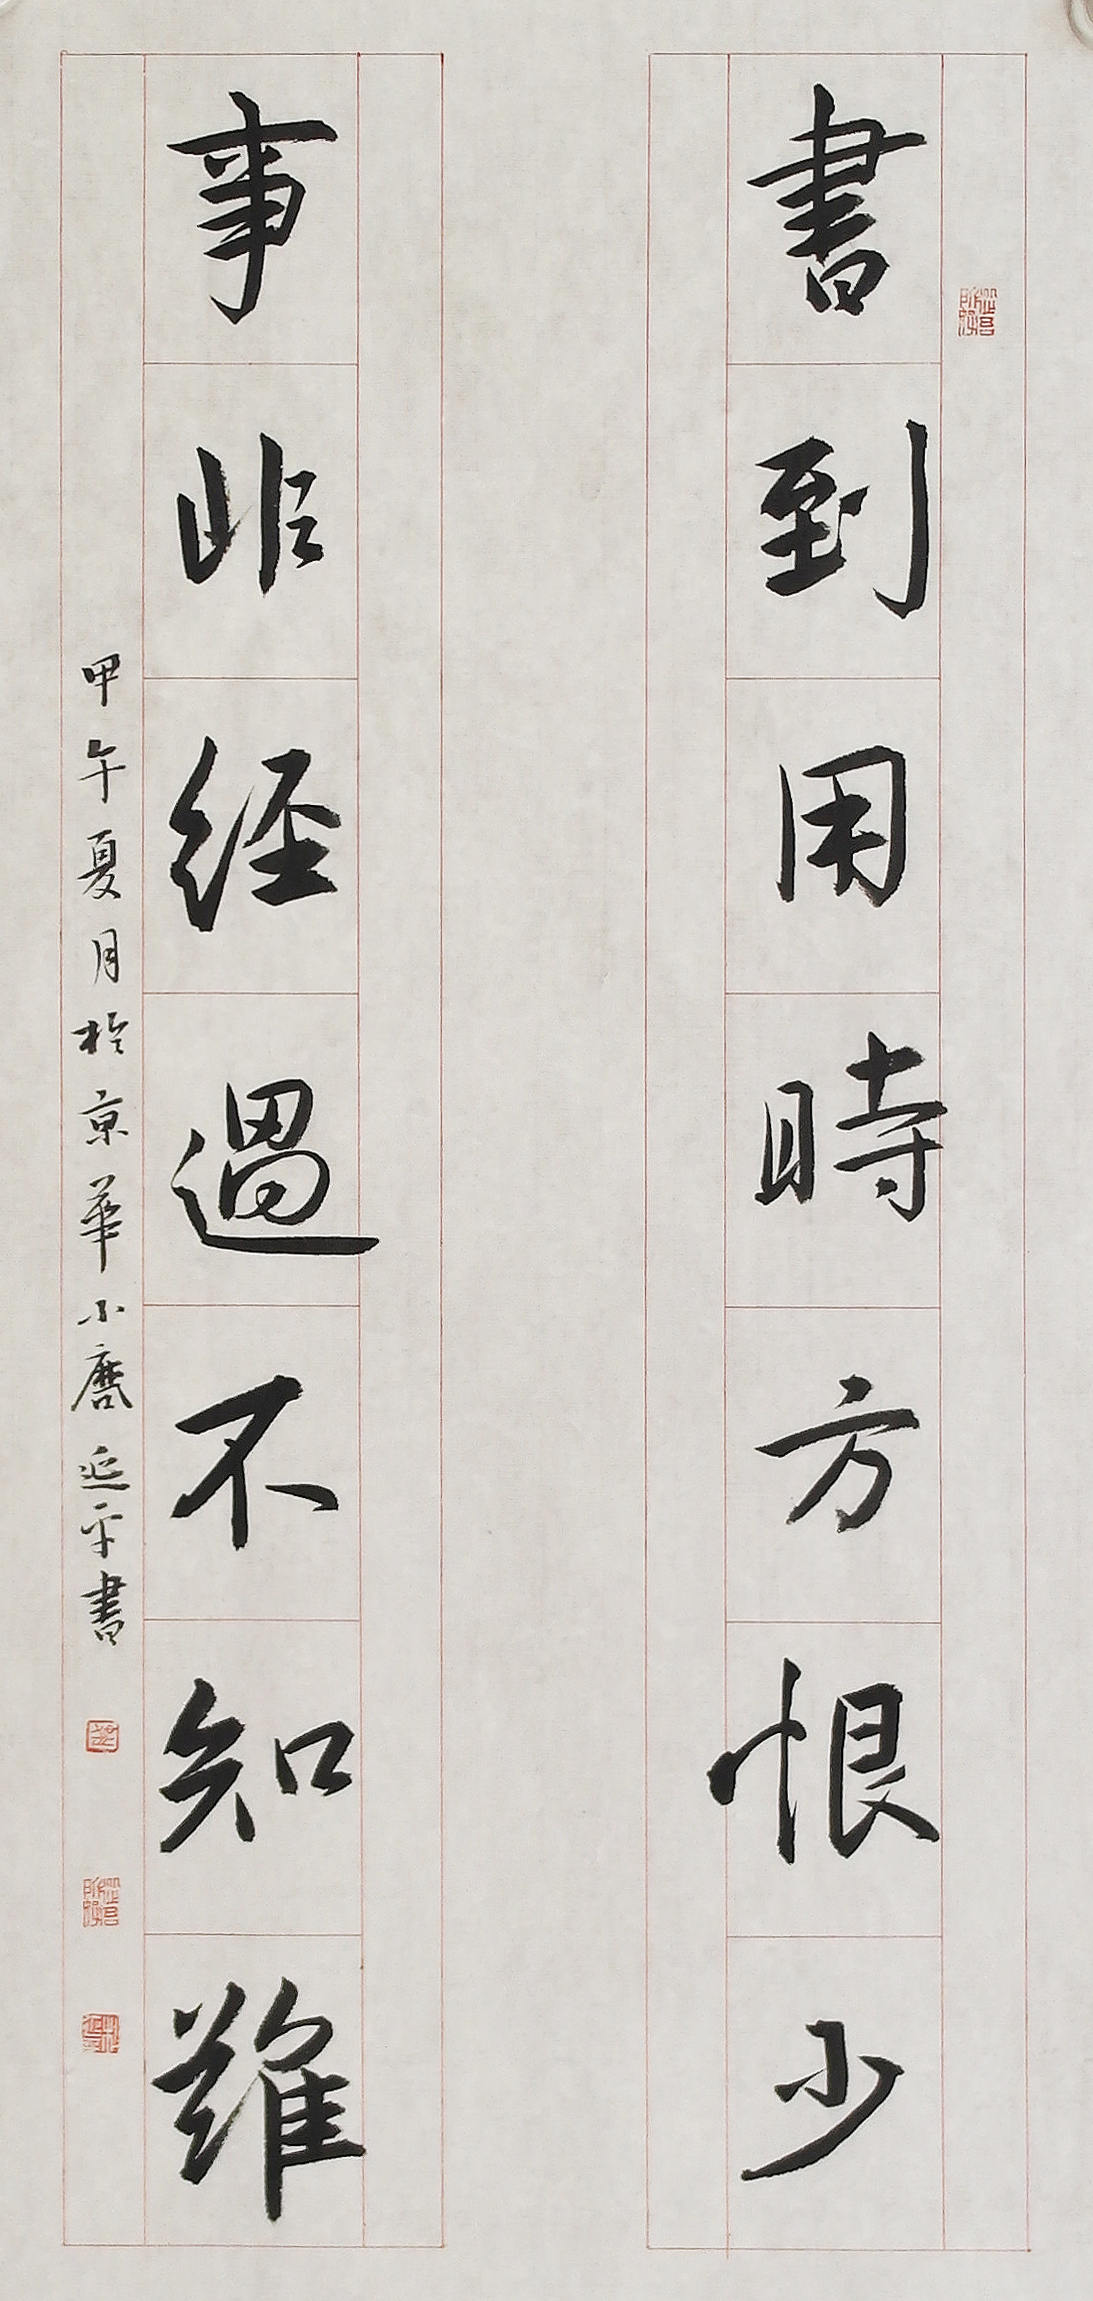 書到用時方恨少
事非經過不知難
甲午夏月於京華小磨延平書